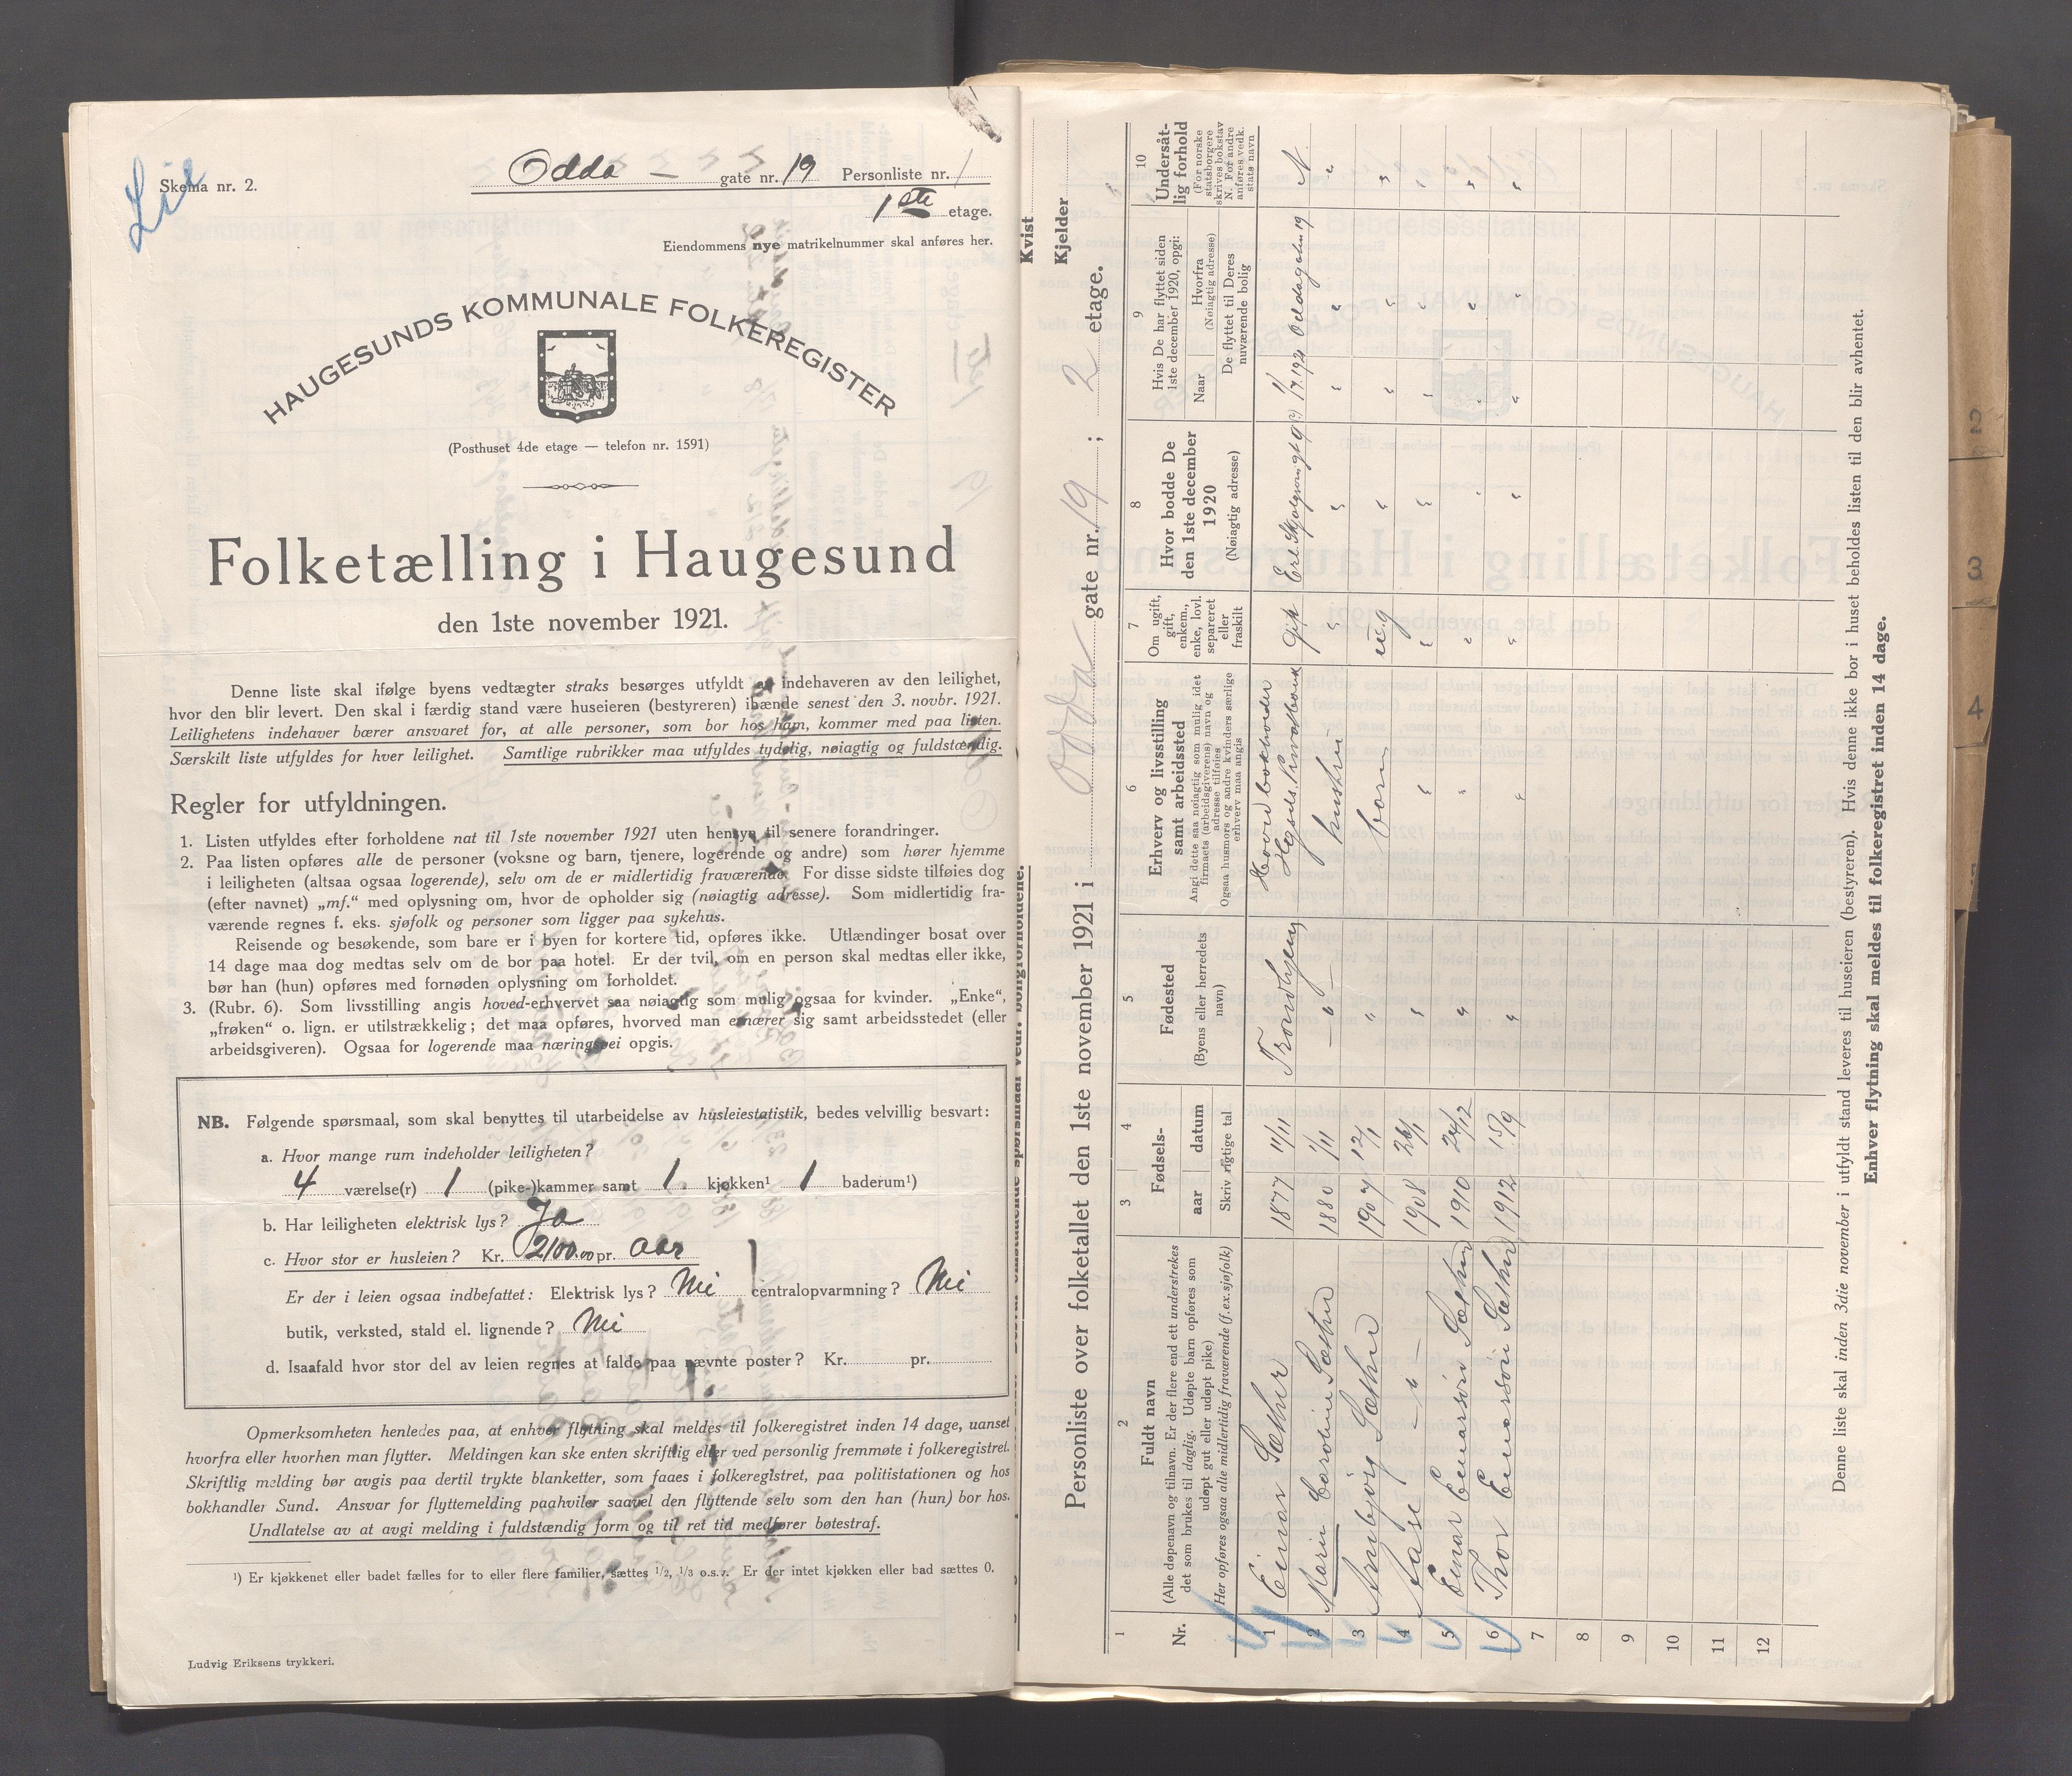 Lie
Skema nr. 2.
Odda — gate nr. 19 Personliste nr. 1
1ste etage.
Eiendommens nye matrikelnummer skal anføres her.
HAUGESUNDS KOMMUNALE FOLKEREGISTER
(Posthuset 4de etage — telefon nr. 1591)
Folketælling i Haugesund
den 1ste november 1921.
Denne liste skal ifølge byens vedtægter straks besørges utfyldt av indehaveren av den leilighet,
hvor den blir levert. Den skal i færdig stand være huseieren (bestyreren) ihænde senest den 3. novbr. 1921.
Leilighetens indehaver bærer ansvaret for, at alle personer, som bor hos ham, kommer med paa listen.
Særskilt liste utfyldes for hver leilighet. Samtlige rubrikker maa utfyldes tydelig, nøiagtig og fuldstændig.
Regler for utfyldningen.
1. Listen utfyldes efter forholdene nat til 1ste november 1921 uten hensyn til senere forandringer.
2. Paa listen opføres alle de personer (voksne og barn, tjenere, logerende og andre) som hører hjemme
i leiligheten (altsaa ogsaa logerende), selv om de er midlertidig fraværende. For disse sidste tilføies dog
(efter navnet) „mf.“ med oplysning om, hvor de opholder sig (nøiagtig adresse). Som midlertidig fra-
værende regnes f. eks. sjøfolk og personer som ligger paa sykehus.
Reisende og besøkende, som bare er i byen for kortere tid, opføres ikke. Utlændinger bosat over
14 dage maa dog medtas selv om de bor paa hotel. Er der tvil, om en person skal medtas eller ikke,
bør han (hun) opføres med fornøden oplysning om forholdet.
3. (Rubr. 6). Som livsstilling angis hoved-erhvervet saa nøiagtig som mulig ogsaa for kvinder. „Enke“,
„frøken“ o. lign. er utilstrækkelig; det maa opføres, hvorved man ernærer sig samt arbeidsstedet (eller
arbeidsgiveren). Ogsaa for logerende maa næringsvei opgis.
NB. Følgende spørsmaal, som skal benyttes til utarbeidelse av husleiestatistik, bedes velvillig besvart:
a. Hvor mange rum indeholder leiligheten?
4 værelse(r) 1 (pike-)kammer samt 1 kjøkken¹ 1 baderum¹)
b. Har leiligheten elektrisk lys? Ja
c. Hvor stor er husleien? Kr. 2100.00 pr. aar
Er der i leien ogsaa indbefattet: Elektrisk lys? Nei centralopvarmning? Nei
butik, verksted, stald el. lignende? Nei
d. Isaafald hvor stor del av leien regnes at falde paa nævnte poster? Kr. pr.
Opmerksomheten henledes paa, at enhver flytning skal meldes til folkeregistret inden 14 dage, uanset
hvorfra eller hvorhen man flytter. Meldingen kan ske enten skriftlig eller ved personlig fremmøte i folkeregistret.
Skriftlig melding bør avgis paa dertil trykte blanketter, som faaes i folkeregistret, paa politistationen og hos
bokhandler Sund. Ansvar for flyttemelding paahviler saavel den flyttende selv som den han (hun) bor hos.
Undlatelse av at avgi melding i fuldstændig form og til ret tid medfører bøtestraf.
¹) Er kjøkkenet eller badet fælles for to eller flere familier, sættes 1/2, 1/3 o.s.v. Er der intet kjøkken eller bad sættes 0.
Ludvig Eriksens trykkeri.
Kvist
Kjelder
Personliste over folketallet den 1ste november 1921 i Odda gate nr. 19 ; 2 etage.
1 2 3 4 5 6 7 8 9 10
Nr.
Fuldt navn
(Alle døpenavn og tilnavn. Er der flere end ett understrekes
det som brukes til daglig. Udøpte barn opføres som
udøpt gut eller udøpt pike)
Her opføres ogsaa alle midlertidig fraværende (f.ex. sjøfolk)
Fødsels-
aar datum
Skriv rigtige tal
Fødested
(Byens eller herredets
navn)
Erhverv og livsstilling
samt arbeidssted
Angi dette saa nøiagtig som mulig idet
firmaets (arbeidsgiverens) navn og
adresse tilføies
Ogsaa husmors og andre kvinders særlige
erhverv maa angis
Om ugift,
gift,
enkem.,
enke, lovl.
separeret
eller
fraskilt
Hvor bodde De
den 1ste december
1920
(Nøiagtig adresse)
Hvis De har flyttet siden
1ste december 1920, opgi:
Naar
Hvorfra
(Nøiagtig adresse)
De flyttet til Deres
nuværende bolig
Undersåt-
lig forhold
(For norske
statsborgere
skrives bokstav
N. For andre
anføres vedk.
stats navn
1 Einar Sæther 1877 11/11 Trondhjem Hovedbokholder Privatbank gift Oddagaten 19 N.
2 Marie Caroline Sæther 1880 1/11 — " — hustru " " " " "
3 Arnbjörg Sæther 1907 12/1 " barn ug " " " "
4 Aase — " — 1908 26/1 " " " " " " "
5 Einar Einarsön Sæther 1910 24/12 " " " " " " "
6 Thor Einarsön Sæther 1912 15/9 " " " " " " "
7
8
9
10
11
12
Denne liste skal inden 3die november i utfyldt stand leveres til huseieren (bestyreren). Hvis denne ikke bor i huset beholdes listen til den blir avhentet.
Enhver flytning skal meldes til folkeregistret inden 14 dage.
2
3
4